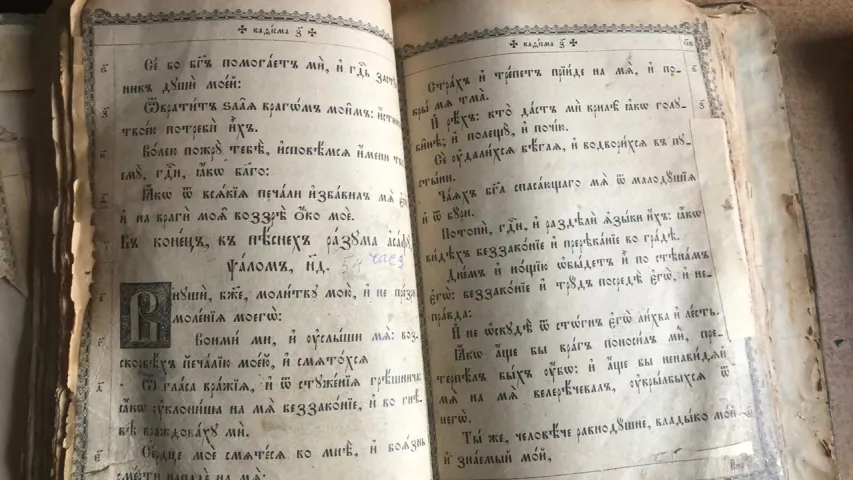 ✠ каѳі́сма з҃ ✠
Се́ бо бг҃ъ помога́етъ мѝ, и҆ гдⷭ҇ь засту́
пникъ дꙋшѝ мое́й:
Ѿврати́тъ ѕла̑ѧ врагѡ́мъ мои̑мъ: и҆́стин
твое́ю потребѝ и҆̀хъ.
Во́лею пожрꙋ̀ тебѣ̀, и҆сповѣ́мсѧ и҆́мени тв
емꙋ̀, гдⷭ҇и, ꙗ҆́кѡ бл҃го:
Ꙗ҆́кѡ ѿ всѧ́кїѧ печа́ли и҆зба́вилъ мѧ̀ є҆сѝ
и҆ на врагѝ моѧ̑ воззрѣ̀ ѻ҆́ко моѐ.
Въ коне́цъ, въ пѣ́снехъ ра́зꙋма а҆са́фꙋ,
ѱало́мъ, н҃д.
Внꙋшѝ, бж҃е, моли́твꙋ мою̀, и҆ не пре́з
моле́нїѧ моегѡ̀:
Вонмѝ ми, и҆ ᲂу҆слы́ши мѧ̀: воз
скорбѣ́хъ печа́лїю мое́ю, и҆ смѧто́хсѧ
Ѿ гла́са вра́жїѧ, и҆ ѿ стꙋже́нїѧ грѣ́шнича:
ꙗ҆́кѡ ᲂу҆клони́ша на мѧ̀ беззако́нїе, и҆ во гнѣ́
вѣ враждова́хꙋ мѝ.
Се́рдце моѐ смѧте́сѧ во мнѣ̀, и҆ боѧ́знь
сме́рти нападѐ на мѧ̀:
✠ каѳі́сма з҃ ✠
Стра́хъ и҆ тре́петъ прїи́де на мѧ̀, и҆ по-
кры̀ мѧ тма̀.
И҆ рѣ́хъ: кто̀ да́стъ мѝ крилѣ̀ ꙗ҆́кѡ голꙋ-
би́нѣ; и҆ полещꙋ̀, и҆ почі́ю.
Сѐ ᲂу҆дали́хсѧ бѣ́гаѧ, и҆ водвори́хсѧ въ пꙋ-
сты́ни.
Ча́ѧхъ бг҃а спаса́ющаго мѧ̀ ѿ малодꙋ́шїѧ
и҆ ѿ бꙋ́ри.
Потопѝ, гдⷭ҇и, и҆ раздѣлѝ ѧ҆зы́ки и҆́хъ: ꙗ҆́кѡ
ви́дѣхъ беззако́нїе и҆ прерѣка́нїе во гра́дѣ.
Дне́мъ и҆ но́щїю ѡ҆бы́детъ и҆̀ по стѣна́мъ
є҆гѡ̀: беззако́нїе и҆ трꙋ́дъ посредѣ̀ є҆гѡ̀, и҆ не-
пра́вда:
И҆ не ѡ҆скꙋдѣ̀ ѿ сто́гнъ є҆гѡ̀ ли́хва и҆ ле́сть.
Ꙗ҆́кѡ а҆́ще бы вра́гъ поноси́лъ мѝ, пре-
терпѣ́лъ бы́хъ ᲂу҆́бѡ: и҆ а҆́ще бы ненави́дѧй
мѧ̀ на мѧ̀ велерѣ́чевалъ, ᲂу҆кры́лбыхсѧ ѿ
негѡ̀.
Ты́ же, человѣ́че равнодꙋ́шне, влады́ко мо́й
и҆ зна́емый мо́й,